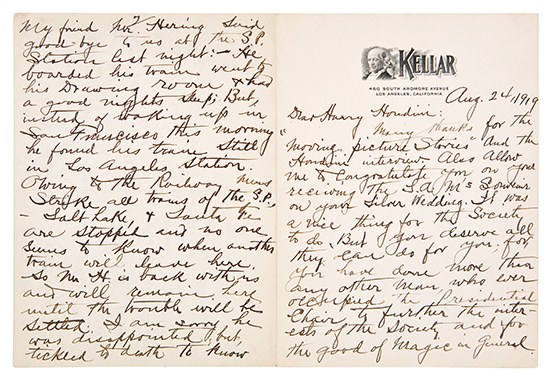 KELLAR
460 SOUTH ARDMORE AVENUE
LOS ANGELES, CALIFORNIA
Aug. 24, 1919
Dear Harry Houdini:
Many thanks for the
"Moving picture Stories" and the
Houdini interview. Also Allow
me to Congratulate you on your
receiving the S.A.M's Souvenir
on your Silver Wedding. It was
a nice thing for the Society
to do. But you deserve all
they can do for you, for,
you have done more than
any other man who ever
occupied the Presidential
Chair to further the inter-
ests of the Society and for
the good of Magic in General.
My friend Mr. Hering said
good bye to us at the S.P.
Station last night. He
boarded his train went to
his Drawing room & had
a good nights sleep; But,
instead of waking up in
San Francisco this morning
he found his train still
in Los Angeles Station.
Owing to the Railway mens
Strike all trains of the S.P.
- Salt Lake, & Santa Fe
are Stopped and no one
seems to know when another
train will leave here.
So Mr. H. is back with us
and will remain here
until the trouble will be
settled. I am sorry he
was disappointed but,
tickled to death to know